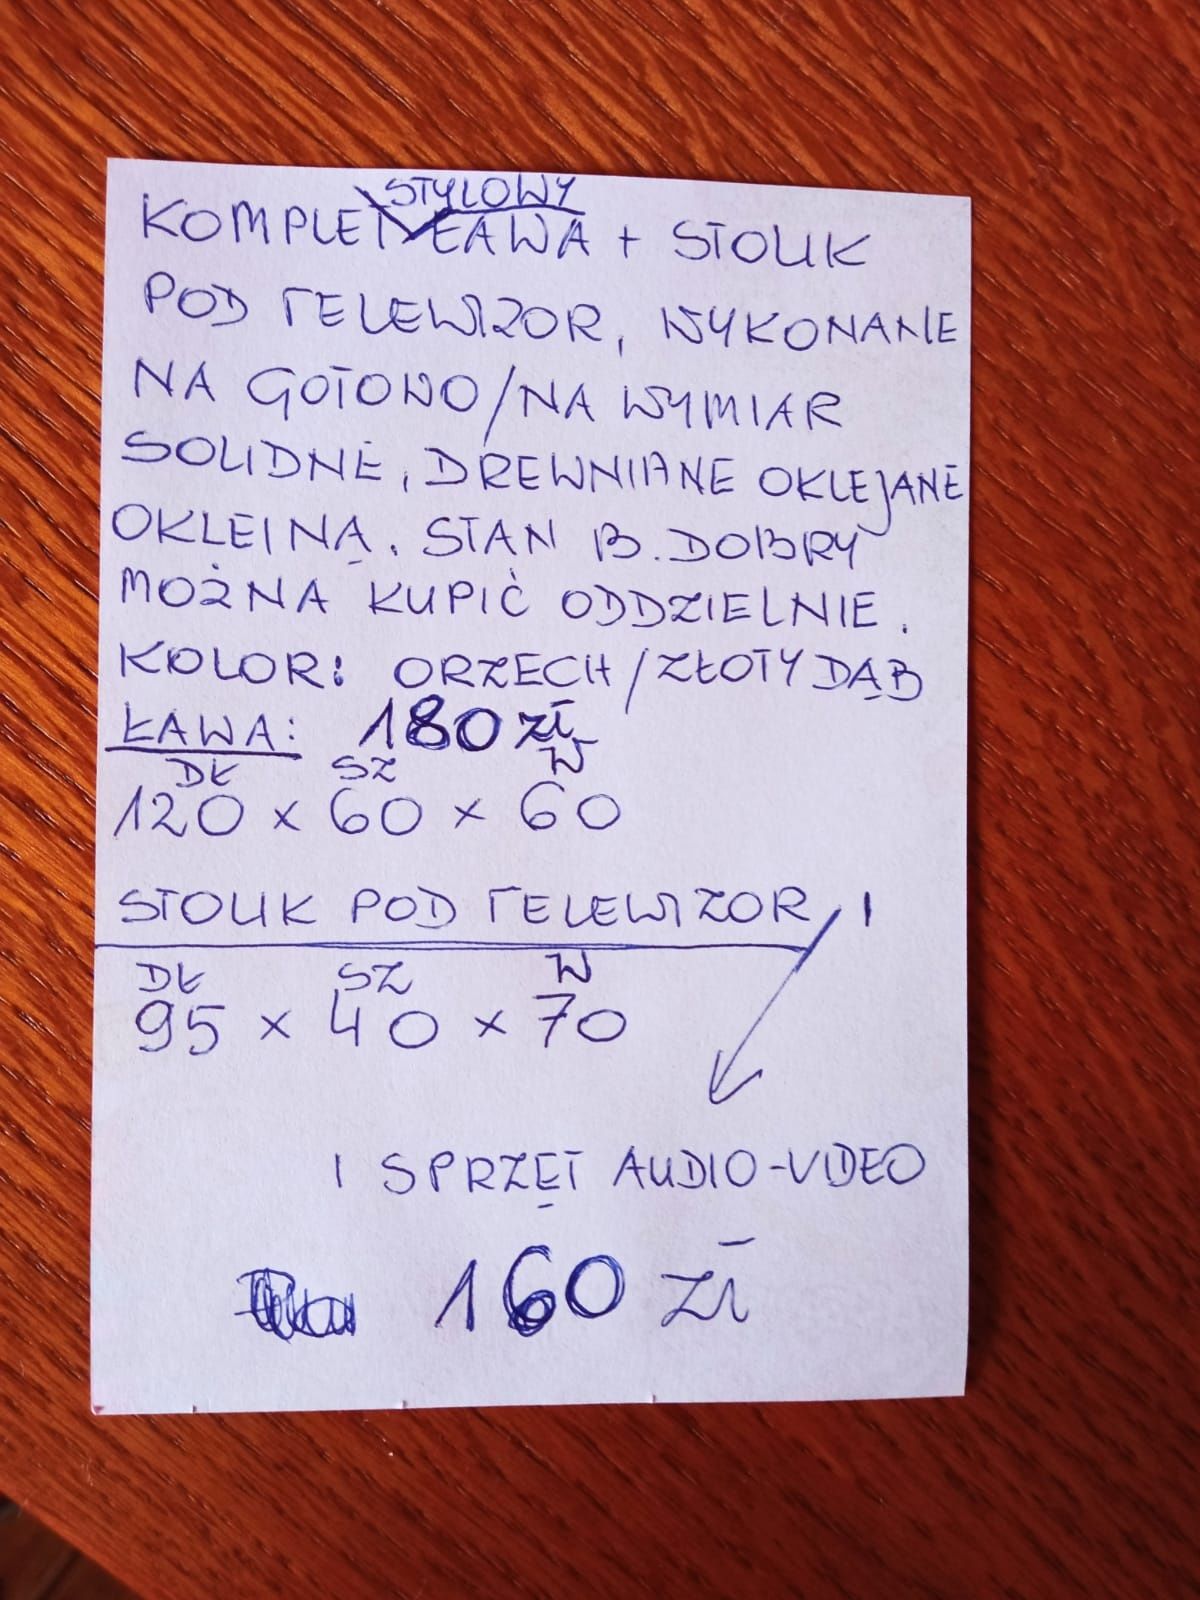 STYLOWY
KOMPLET ŁAWA + STOLIK
POD TELEWIZOR, WYKONANE
NA GOTOWO/NA WYMIAR
SOLIDNE, DREWNIANE OKLEJANE
OKLEINĄ. STAN B. DOBRY
MOŻNA KUPIĆ ODDZIELNIE.
KOLOR: ORZECH/ZŁOTY DĄB
ŁAWA: 180 zł
DŁ SZ W
120 x 60 x 60
STOLIK POD TELEWIZOR, I
DŁ SZ W
95 x 40 x 70
I SPRZĘT AUDIO-VIDEO
160 zł